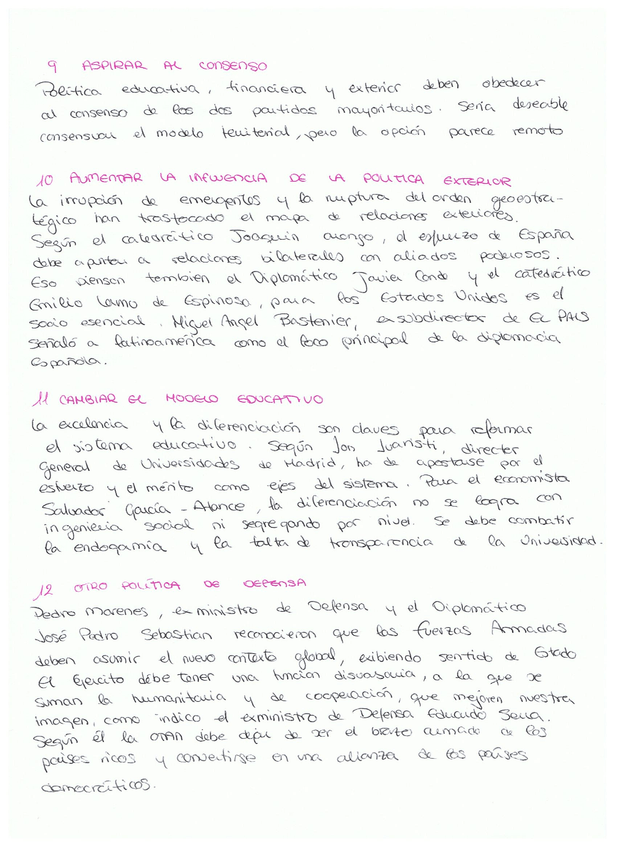 9 ASPIRAR AL CONSENSO
Política educativa, financiera y exterior deben obedecer
al consenso de los dos partidos mayoritarios. Sería deseable
consensuar el modelo territorial, pero la opción parece remoto
10 AUMENTAR LA INFLUENCIA DE LA POLITICA EXTERIOR
La irrupción de emergentes y la ruptura del orden geoestra-
tégico han trastocado el mapa de relaciones exteriores.
Según el catedrático Joaquin Arango, el esfuerzo de España
debe apuntar a relaciones bilaterales con aliados poderosos.
Eso piensan tambien el Diplomático Javier Conde y el catedrático
Emilio Lamo de Espinosa, para los Estados Unidos es el
socio esencial. Miguel Angel Bastenier, exsubdirector de EL PAIS
señaló a latinoamérica como el foco principal de la diplomacia
Española.
11 CAMBIAR EL MODELO EDUCATIVO
La excelencia y la diferenciación son claves para reformar
el sistema educativo. Según Jon Juaristi, director
general de Universidades de Madrid, ha de apostarse por el
esfuerzo y el mérito como ejes del sistema. Para el economista
Salvador García - Atance, la diferenciación no se logra con
ingenieria social ni segregando por nivel. Se debe combatir
la endogamia y la falta de transparencia de la Universidad.
12 OTRO POLÍTICA DE DEFENSA
Pedro Morenes, ex ministro de Defensa y el Diplomático
José Pedro Sebastian reconocieron que las fuerzas Armadas
deben asumir el nuevo contexto global, exibiendo sentido de Estado
El Ejercito debe tener una función disuasoria, a la que se
suman la humanitaria y de cooperación, que mejoren nuestra
imagen, como indico el exministro de Defensa Eduardo Serra.
Según él la OTAN debe dejar de ser el brazo armado de los
países ricos y convertirse en una alianza de los países
democráticos.